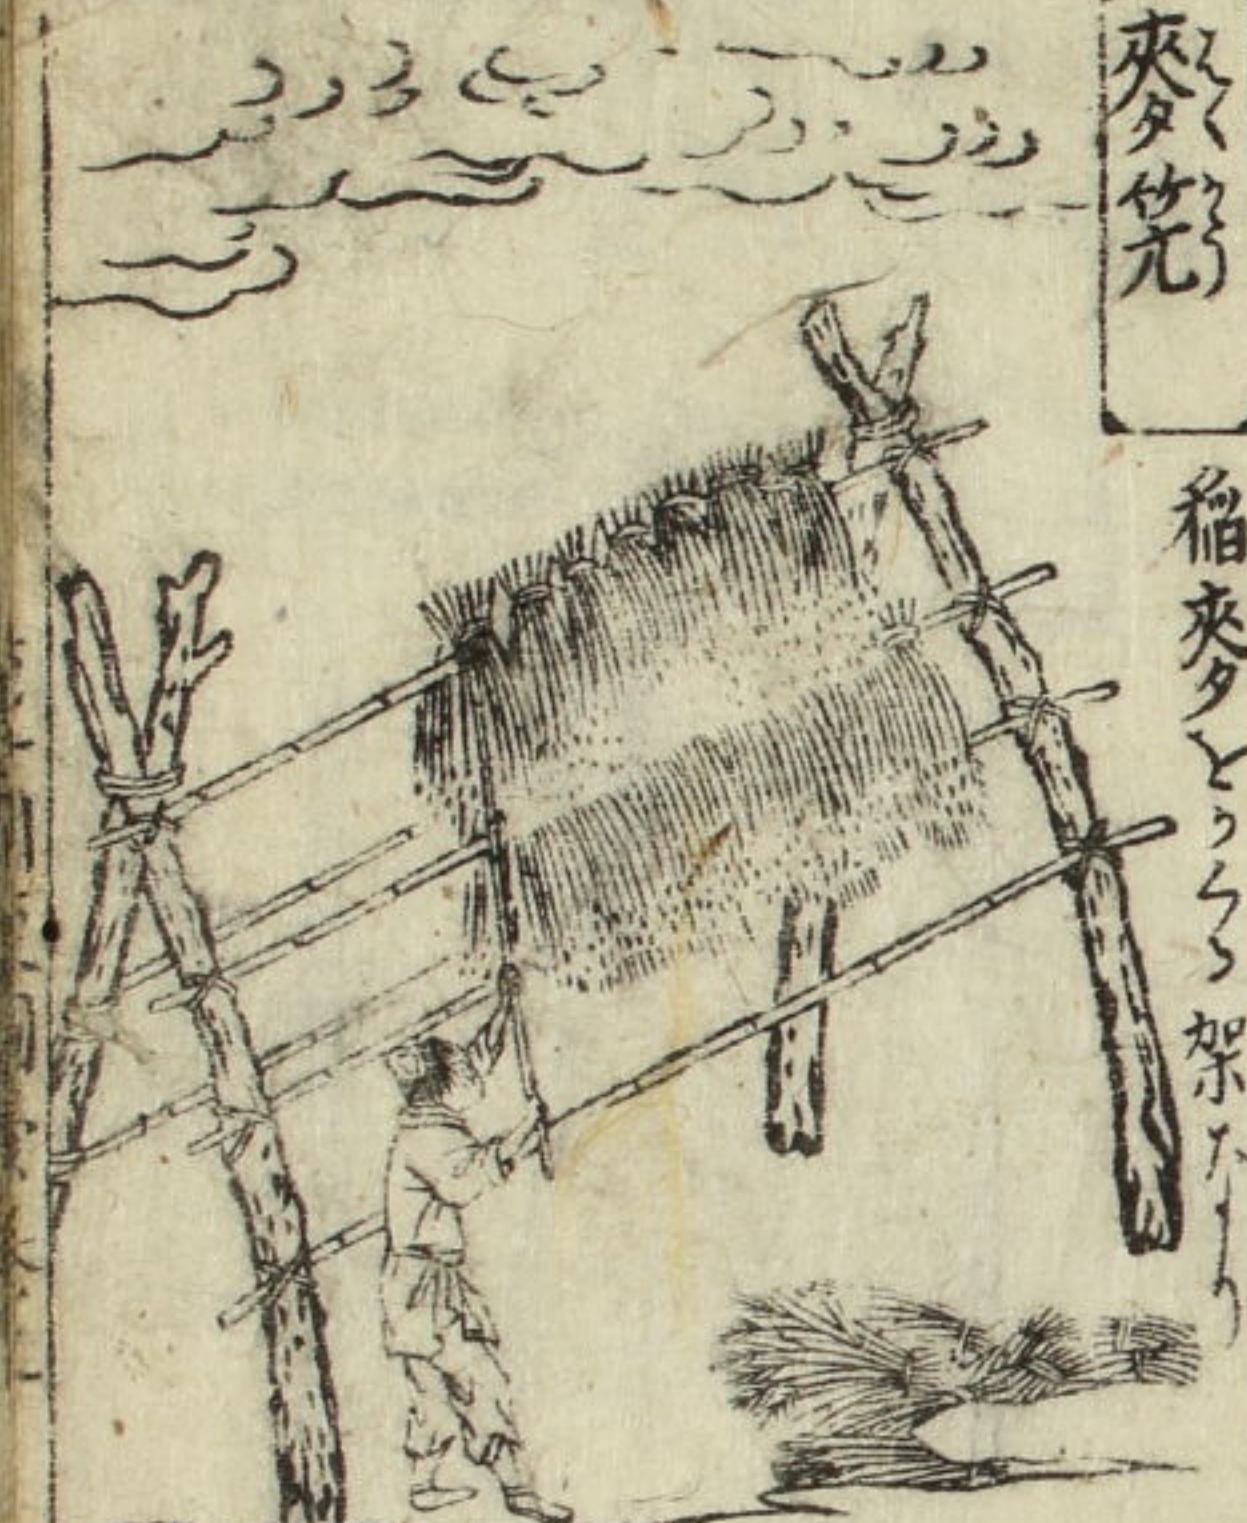 麥笐 はくかう
稲麥をかくる架なり